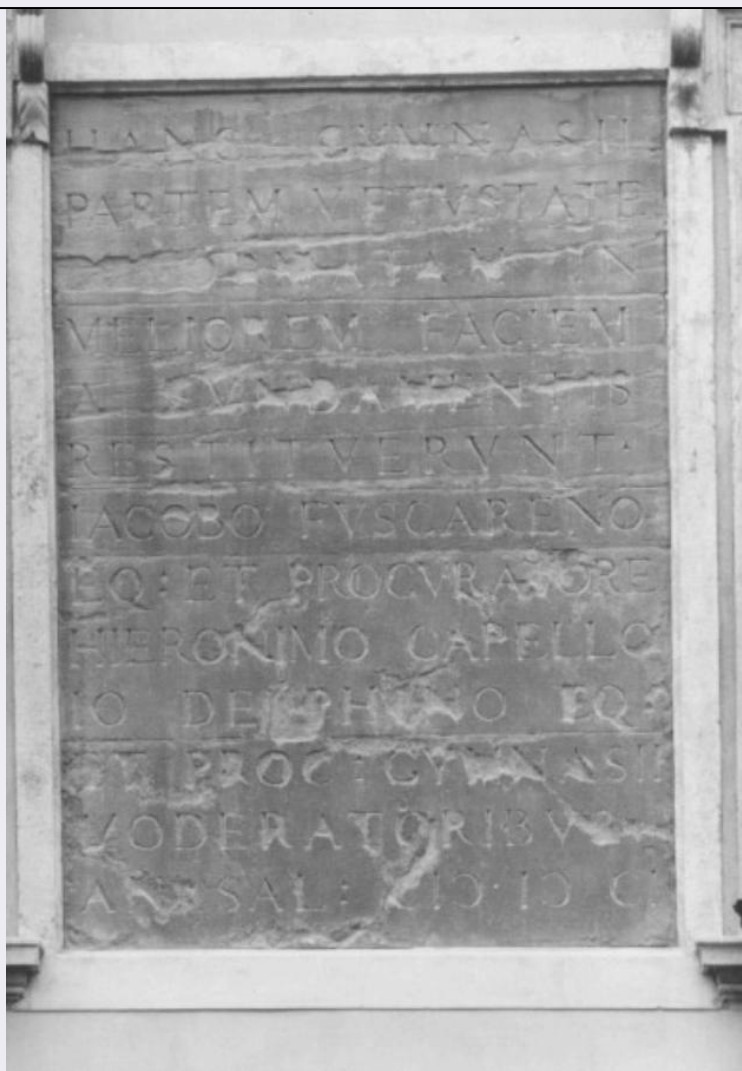 HANC GYMNASII
PARTEM VETVSTATE
IN
MELIOREM FACIEM
A FVNDAMENTIS
RESTITVERVNT·
IACOBO FVSCARENO
EQ: ET PROCVRATORE
HIERONIMO CAPELLO
IO DELPHINO EQ:
ET PROC: GYMNASII
MODERATORIBVS
AN: SAL: CIↃ·IↃ C I